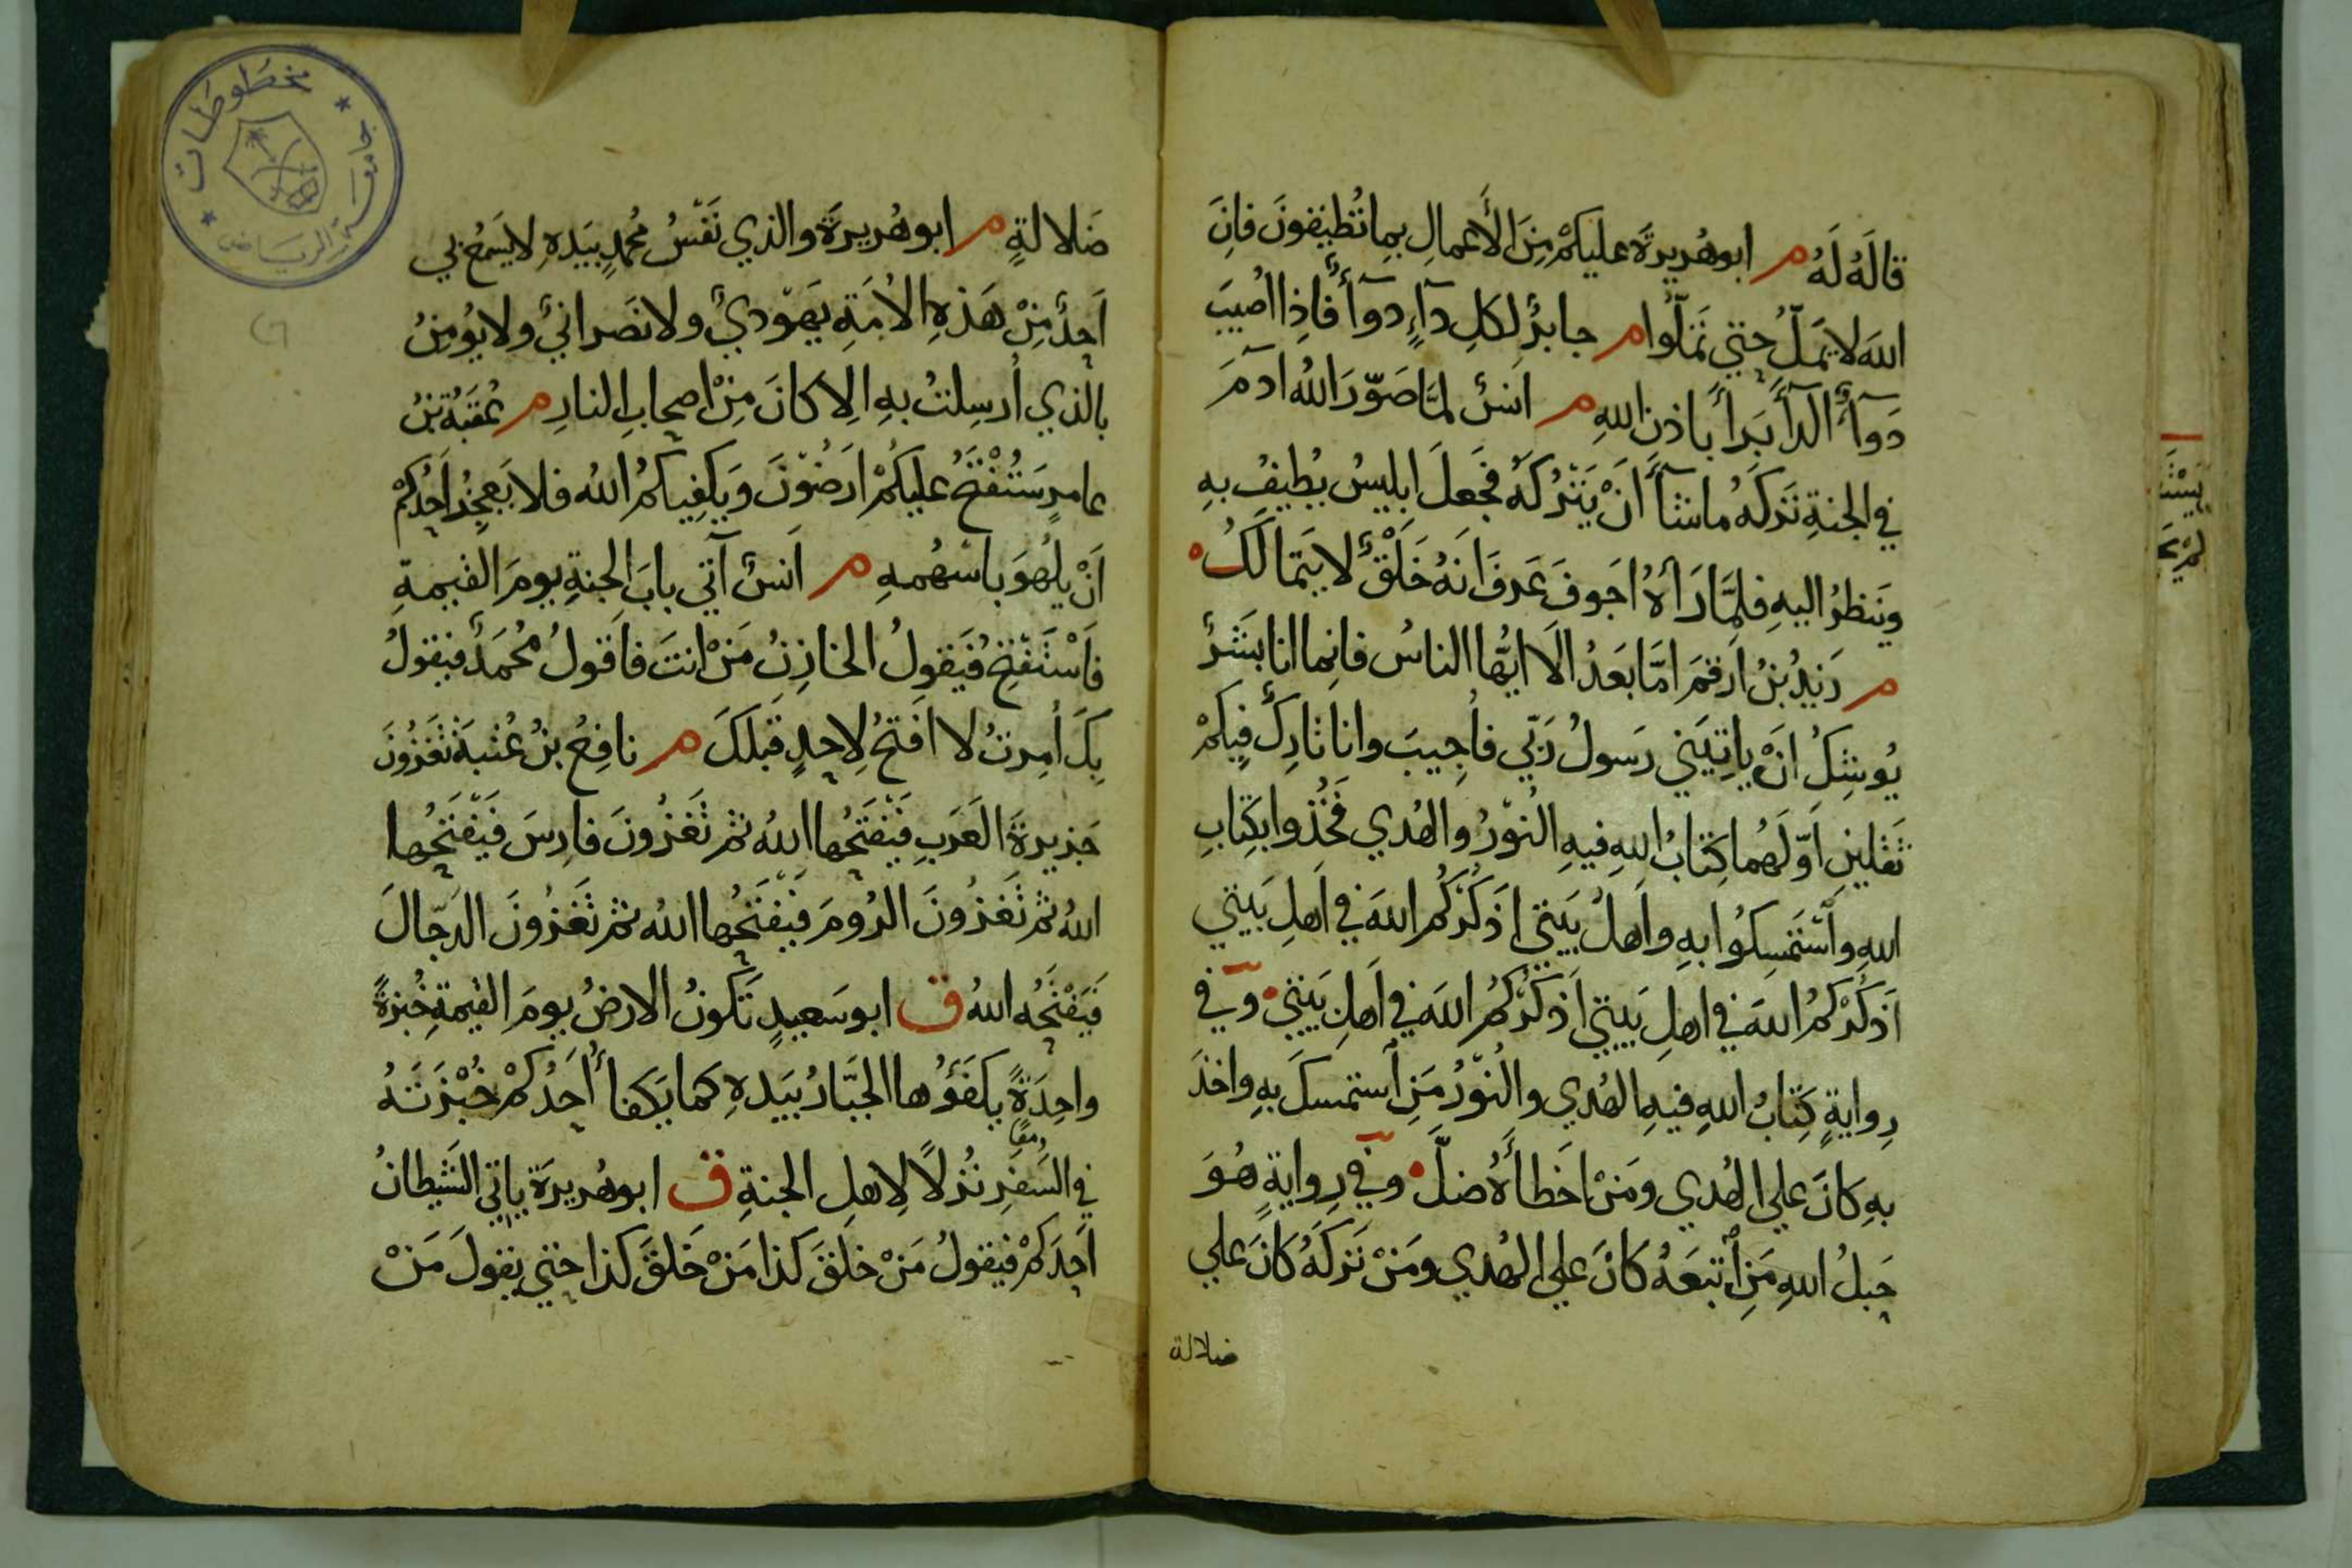 قالَهُ لَهُ م ابوهُريرةَ عليكمْ مِنَ الأَعمالِ بِما تُطيقونَ فإِنَ
اللهَ لا يَملُّ حتي تَملّوا م جابرٌ لكلِ دآءٍ دوآءٌ فاِذا اُصيبَ
دَوآءُ الدآءِ بَرأَ باذنِ اللهِ م اَنسٌ لمّا صَوّرَ اللهُ ادمَ
في الجنةِ تَركَهُ ما شآءَ اَنْ يَتْرُكَهُ فجَعلَ ابليسُ يُطيفُ بهِ
وينظرُ اليهِ فلمّا رَآهُ اجَوفَ عَرفَ اَنهُ خَلْقٌ لا يَتمالَكُ
م زيدُ بنُ اَرقمَ امّا بَعدُ الَا ايّها الناسُ فاِنما انا بشَرٌ
يُوشِكُ اَنْ ياتيَني رَسولُ رَبّي فاُجيبَ وانا تارِكٌ فيكمْ
ثَقلينِ اَوّلَهُما كِتابُ اللهِ فيهِ النُورُ والهُدي فَخُذوا بكِتابِ
اللهِ وٱسْتَمسِكُوا بهِ واَهلُ بَيتي اُذَكّرُكُم اللهَ في اَهلِ بَيتي
اُذَكّرُكمُ اللهَ في اهلِ بَيتي اُذَكّرُكُمُ اللهَ في اَهلِ بَيتي وفي
رِوايةٍ كِتابُ اللهِ فيهِ الهُدي والنُورُ مَنِ ٱستمسكَ بهِ واخذَ
بهِ كانَ علي الهُدي ومَنْ اخَطأَهُ ضلَّ وفي رِوايةٍ هُوَ
حَبلُ اللهِ مَنِ ٱتبَعهُ كانَ علي الهُدي ومَنْ تَركَهُ كانَ علي
ضلالة
ضَلالةٍ م ابوهُريرةَ والذي نَفسُ مُحمدٍ بيَدهِ لا يَسمعُ بي
اَحدٌ مِنْ هَذهِ الاُمَةِ يَهوديٌ ولا نَصرانيٌ ولا يُومِنُ
بالذي اُرسِلتُ بهِ اِلا كانَ مِنْ اصحابِ النارِ م عُقبةُ بنُ
عامرٍ سَتُفْتَحُ عليكمْ اَرَضُونَ وَيَكفيكمُ اللهُ فلا يَعجِزُ اَحدُكم
اَنْ يلْهُوَ باسْهُمهِ م اَنسٌ آتي بابَ الجنةِ يومَ القيمةِ
فاَسْتَفتِحُ فيَقولُ الخازِنُ مَنْ انتَ فاَقولُ مُحمَدٌ فيقولُ
بكَ اُمِرتُ لا اَفتحُ لاِحدٍ قبلكَ م نافِعُ بنُ عُتبةَ تَغزُونَ
جَزيرةَ العَربِ فَيَفتَحُها اللهُ ثم تَغزُونَ فارِسَ فَيَفتَحُها
اللهُ ثم تَغزُونَ الرُومَ فَيَفتَحُها اللهُ ثم تَغزُونَ الدَجّالَ
فَيَفْتَحُه اللهُ ق ابو سَعيدٍ تَكونُ الارضُ يومَ القيمةِ خُبزةً
واحِدَةً يكفَؤُها الجَبّارُ بيَدهِ كما يَكفأُ اَحَدُكمْ خُبْزَتَهُ
في السَفرِ نُزلاً لاِهلِ الجنةِ ق ابوهُريرةَ ياتي الشَيطانُ
اَحَدَكمْ فيقولُ مَنْ خلقَ كذا مَنْ خَلقَ كذا حتي يقولَ مَنْ
مخطوطات
جامعة الرياض